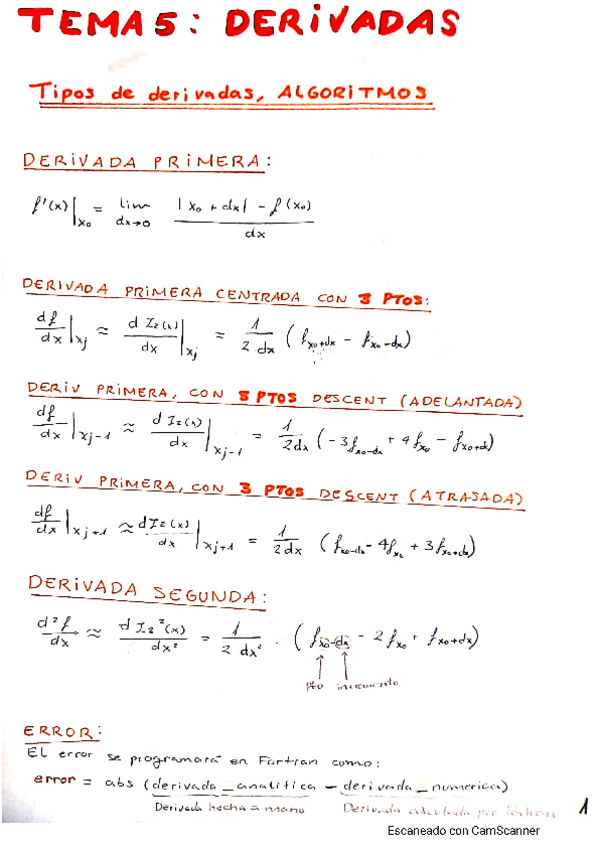 TEMA 5: DERIVADAS
Tipos de derivadas, ALGORITMOS
DERIVADA PRIMERA:
f'(x)|x₀ = lim dx→0 |x₀ + dx| - f(x₀) / dx
DERIVADA PRIMERA CENTRADA CON 3 PTOS:
df/dx |xj ≈ d I₂(x)/dx |xj = 1/2 dx (fx₀+dx - fx₀-dx)
DERIV PRIMERA, CON 3 PTOS DESCENT (ADELANTADA)
df/dx |xj-1 ≈ d I₂(x)/dx |xj-1 = 1/2dx (-3fx₀-dx + 4fx₀ - fx₀+dx)
DERIV PRIMERA, CON 3 PTOS DESCENT (ATRASADA)
df/dx |xj+1 ≈ d I₂(x)/dx |xj+1 = 1/2dx (fx₀-dx - 4fx₀ + 3fx₀+dx)
DERIVADA SEGUNDA:
d²f/dx ≈ d I₂²(x)/dx² = 1/2 dx² · (fx₀-dx - 2fx₀ + fx₀+dx)
Pto incremento
ERROR:
El error se programará en Fortran como:
error = abs (derivada_analitica - derivada_numerica)
Derivada hecha a mano Derivada calculada por Fortran
1
Escaneado con CamScanner